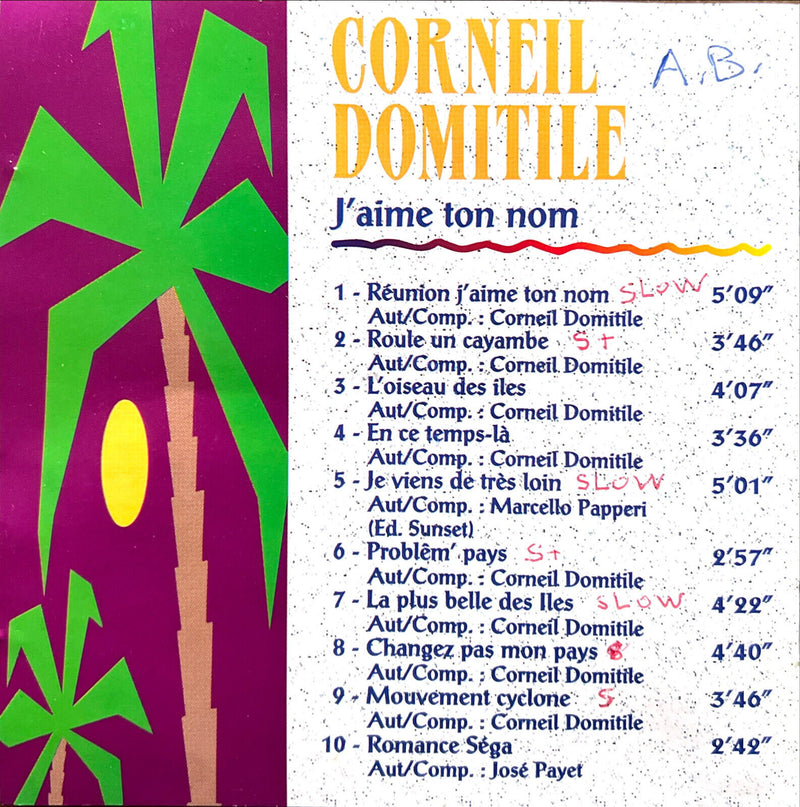 CORNEIL
DOMITILE
A.B.
J'aime ton nom
1 - Réunion j'aime ton nom SLOW 5'09"
Aut/Comp. : Corneil Domitile
2 - Roule un cayambe S+ 3'46"
Aut/Comp. : Corneil Domitile
3 - L'oiseau des îles 4'07"
Aut/Comp. : Corneil Domitile
4 - En ce temps-là 3'36"
Aut/Comp. : Corneil Domitile
5 - Je viens de très loin SLOW 5'01"
Aut/Comp. : Marcello Papperi
(Ed. Sunset)
6 - Problêm' pays S+ 2'57"
Aut/Comp. : Corneil Domitile
7 - La plus belle des Iles SLOW 4'22"
Aut/Comp. : Corneil Domitile
8 - Changez pas mon pays 4'40"
Aut/Comp. : Corneil Domitile
9 - Mouvement cyclone S 3'46"
Aut/Comp. : Corneil Domitile
10 - Romance Séga 2'42"
Aut/Comp. : José Payet